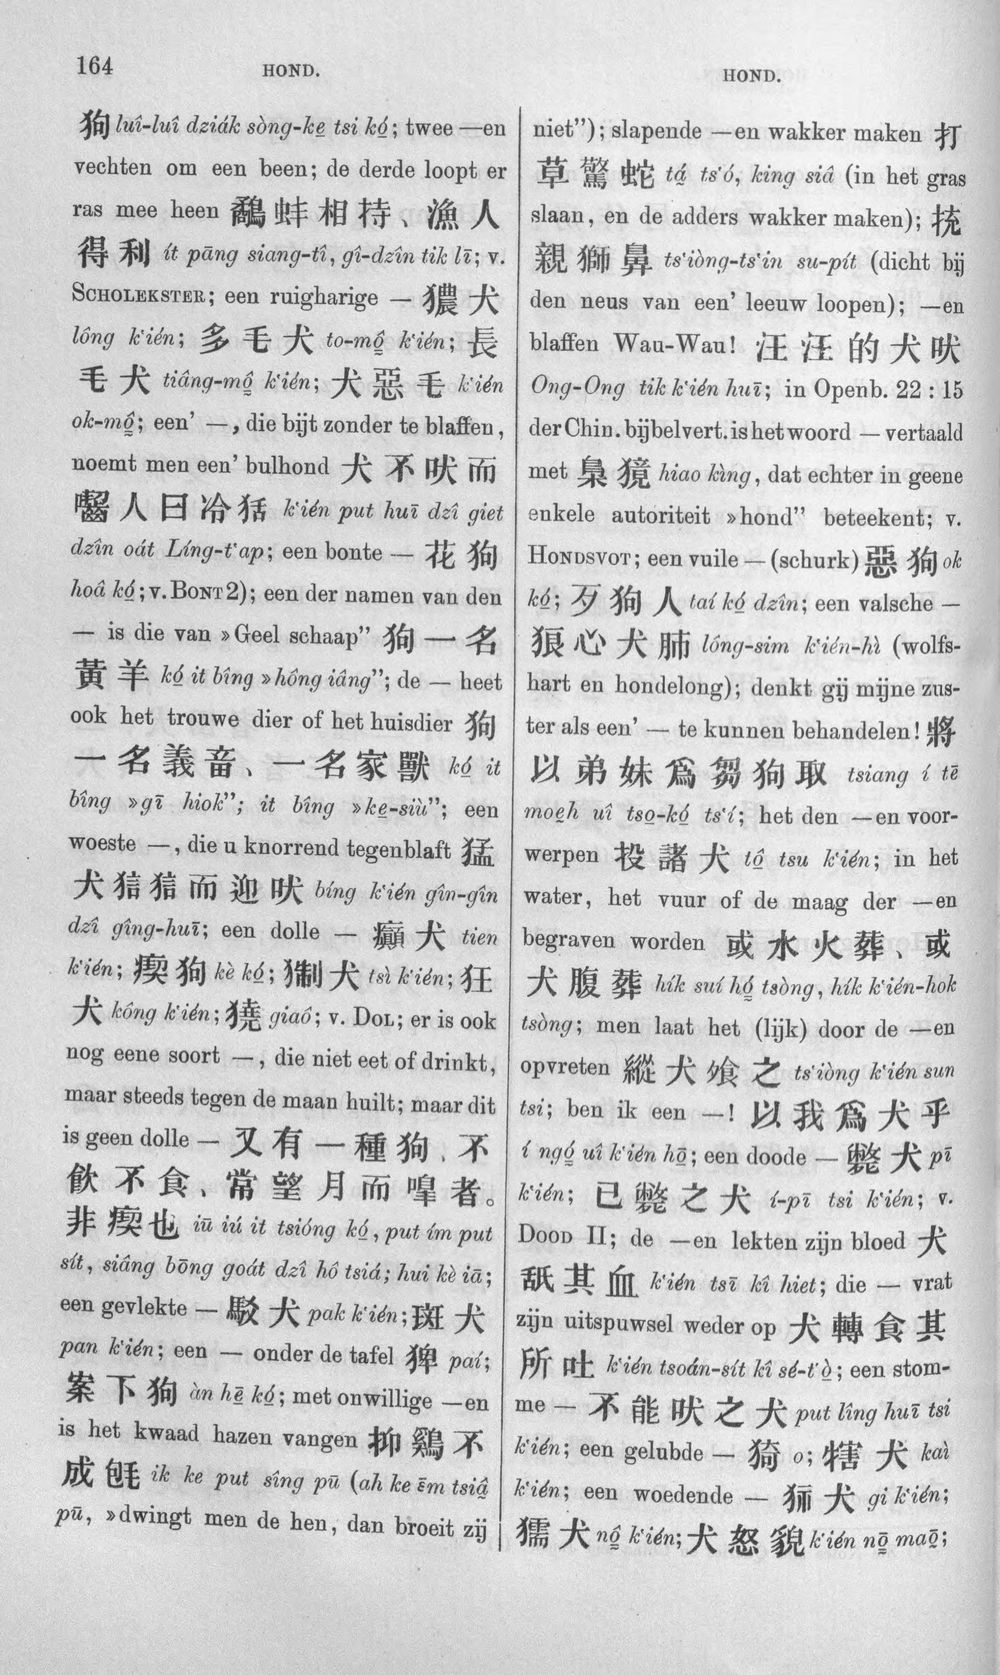 164
HOND.
狗 luî-luî dziák sòng-ke̱ tsi kó̱; twee —en
vechten om een been; de derde loopt er
ras mee heen 鷸蚌相持、漁人
得利 ít pāng siang-tî, gî-dzîn tik lī; v.
SCHOLEKSTER; een ruigharige — 獽犬
lông k'ién; 多毛犬 to-mô̱ k'ién; 長
毛犬 tiâng-mô̱ k'ién; 犬惡毛 k'ién
ok-mô̱; een' —, die bijt zonder te blaffen,
noemt men een' bulhond 犬不吠而
囓人曰冷㹇 k'ién put huī dzî giet
dzîn oát Líng-t'ap; een bonte — 花狗
hoâ kó̱; v. BONT 2); een der namen van den
— is die van »Geel schaap" 狗一名
黃羊 kó̱ it bîng »hông iâng"; de — heet
ook het trouwe dier of het huisdier 狗
一名義畜、一名家獸 kó̱ it
bîng »gī hiok"; it bîng »ke̱-siù"; een
woeste —, die u knorrend tegenblaft 猛
犬狺狺而迎吠 bíng k'ién gîn-gîn
dzî gîng-huī; een dolle — 癲犬 tien
k'ién; 瘈狗 kè kó̱; 猘犬 tsì k'ién; 狂
犬 kông k'ién; 獟 giaô; v. DOL; er is ook
nog eene soort —, die niet eet of drinkt,
maar steeds tegen de maan huilt; maar dit
is geen dolle — 又有一種狗、不
飲不食、常望月而嘷者。
非瘈也 iū iú it tsióng kó̱, put ím put
sít, siâng bōng goát dzî hô tsiá; hui kè iā;
een gevlekte — 駁犬 pak k'ién; 斑犬
pan k'ién; een — onder de tafel 猈 paí;
案下狗 àn hē kó̱; met onwillige —en
is het kwaad hazen vangen 抑鷄不
成㲋 ik ke put sîng pū (ah ke ēm tsiâ̱
pū, »dwingt men de hen, dan broeit zij
HOND.
niet"); slapende —en wakker maken 打
草驚蛇 tá̱ ts'ó, king siâ (in het gras
slaan, en de adders wakker maken); 㧡
親獅鼻 ts'iòng-ts'in su-pít (dicht bij
den neus van een' leeuw loopen); —en
blaffen Wau-Wau! 汪汪的犬吠
Ong-Ong tik k'ién huī; in Openb. 22 : 15
der Chin. bijbelvert. is het woord — vertaald
met 梟獍 hiao kìng, dat echter in geene
enkele autoriteit »hond" beteekent; v.
HONDSVOT; een vuile — (schurk) 惡狗 ok
kó̱; 歹狗人 taí kó̱ dzîn; een valsche —
狼心犬肺 lóng-sim k'ién-hì (wolfs-
hart en hondelong); denkt gij mijne zus-
ter als een' — te kunnen behandelen! 將
以弟妹爲芻狗取 tsiang í tē
moe̱h uî tso̱-kó̱ ts'í; het den —en voor-
werpen 投諸犬 tô̱ tsu k'ién; in het
water, het vuur of de maag der —en
begraven worden 或水火葬、或
犬腹葬 hík suí hó̱ tsòng, hík k'ién-hok
tsòng; men laat het (lijk) door de —en
opvreten 縱犬飧之 ts'iòng k'ién sun
tsi; ben ik een —! 以我爲犬乎
í ngó̱ uî k'ién hō̱; een doode — 斃犬 pī
k'ién; 已斃之犬 í-pī tsi k'ién; v.
DOOD II; de —en lekten zijn bloed 犬
舐其血 k'ién tsī kî hiet; die — vrat
zijn uitspuwsel weder op 犬轉食其
所吐 k'ién tsoán-sít kî sé-t'ò̱; een stom-
me — 不能吠之犬 put lîng huī tsi
k'ién; een gelubde — 猗 o; 犗犬 kaì
k'ién; een woedende — 㹻犬 gi k'ién;
獳犬 nô̱ k'ién; 犬怒貌 k'ién nō̱ maō̱;